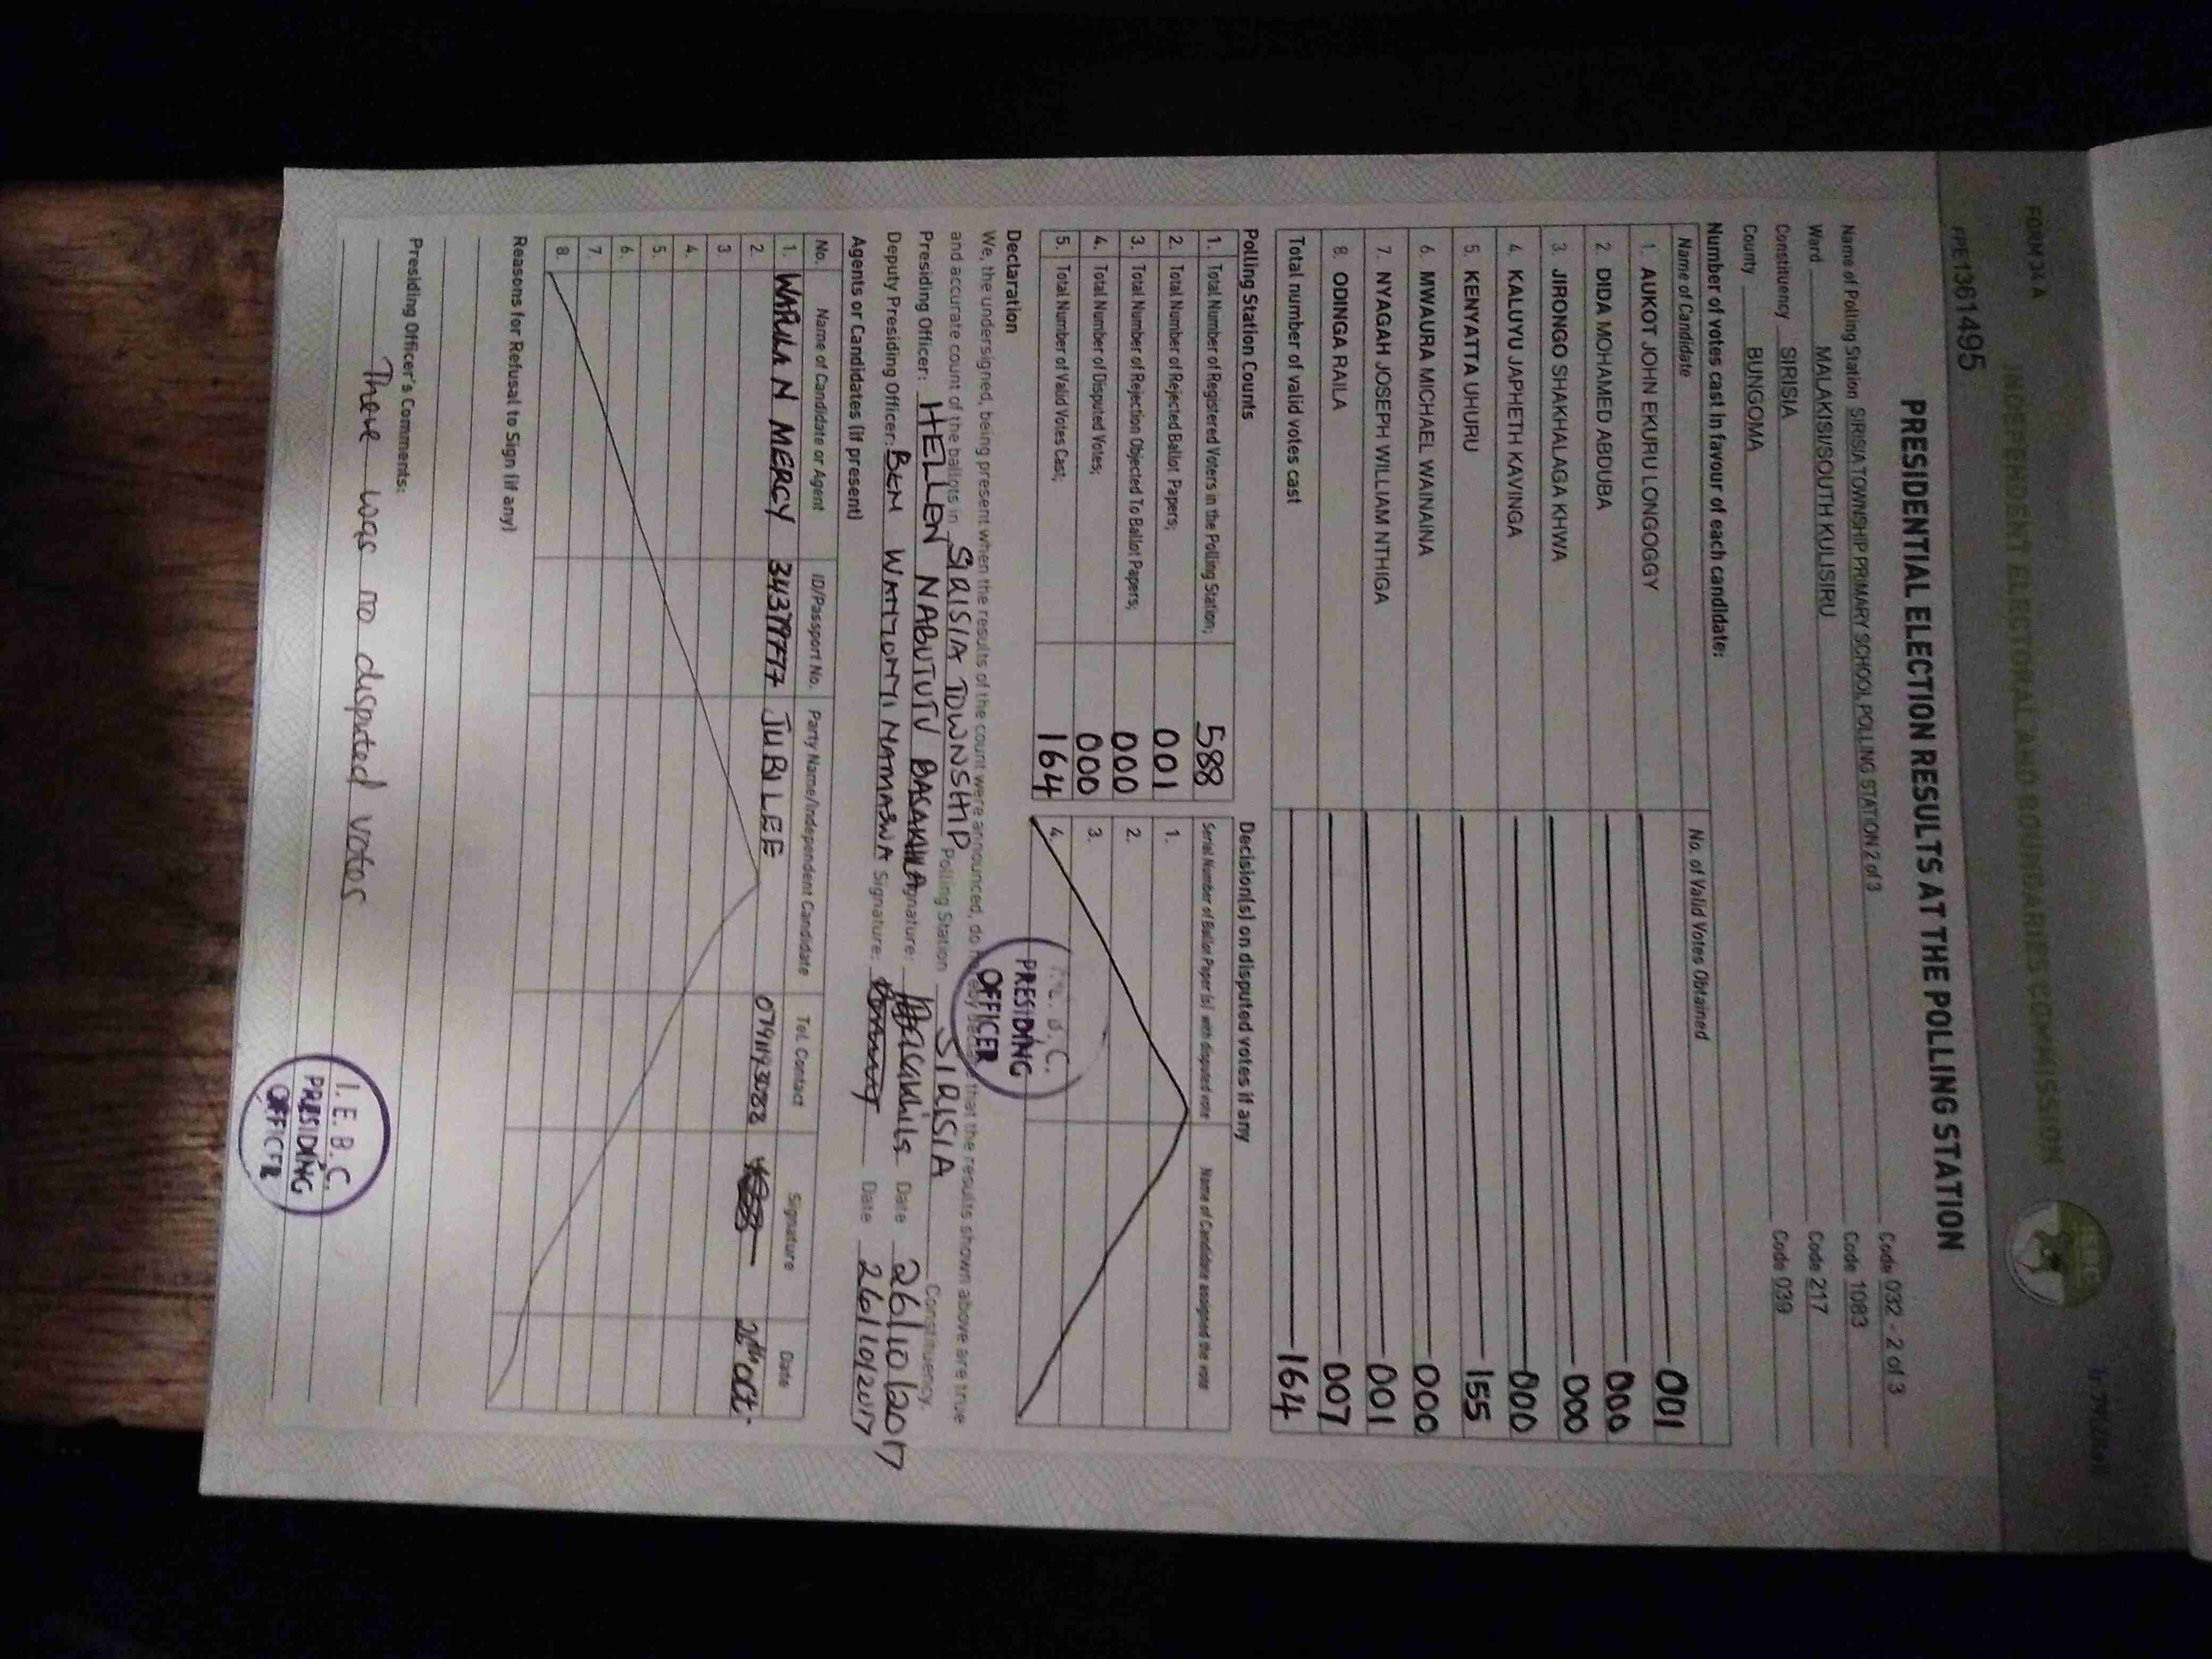 FORM 34 A
INDEPENDENT ELECTORAL AND BOUNDARIES COMMISSION
FPE1361495
PRESIDENTIAL ELECTION RESULTS AT THE POLLING STATION
Name of Polling Station SIRISIA TOWNSHIP PRIMARY SCHOOL POLLING STATION 2 of 3 Code 032 - 2 of 3
Ward MALAKISI/SOUTH KULISIRU Code 1083
Constituency SIRISIA Code 217
County BUNGOMA Code 039
Number of votes cast in favour of each candidate:
Name of Candidate No. of Valid Votes Obtained
1. AUKOT JOHN EKURU LONGOGGY 001
2. DIDA MOHAMED ABDUBA 000
3. JIRONGO SHAKHALAGA KHWA 000
4. KALUYU JAPHETH KAVINGA 000
5. KENYATTA UHURU 155
6. MWAURA MICHAEL WAINAINA 000
7. NYAGAH JOSEPH WILLIAM NTHIGA 001
8. ODINGA RAILA 007
Total number of valid votes cast 164
Polling Station Counts
1. Total Number of Registered Voters in the Polling Station; 588
2. Total Number of Rejected Ballot Papers; 001
3. Total Number of Rejection Objected To Ballot Papers; 000
4. Total Number of Disputed Votes; 000
5. Total Number of Valid Votes Cast; 164
Decision(s) on disputed votes if any
Serial Number of Ballot Paper (s) with disputed vote Name of Candidate assigned the vote
1.
2.
3.
4.
Declaration
We, the undersigned, being present when the results of the count were announced, do hereby declare that the results shown above are true
and accurate count of the ballots in SIRISIA TOWNSHIP Polling Station SIRISIA Constituency.
Presiding Officer: HELLEN NABUTUTU Signature: Date 26/10/2017
Deputy Presiding Officer: BEN NAMASWA Signature: Date 26/10/2017
PRESIDING
OFFICER
Agents or Candidates (if present)
No. Name of Candidate or Agent ID/Passport No. Party Name/Independent Candidate Tel. Contact Signature Date
1. N MERCY JUBILEE
2.
3
4.
5.
6.
7.
8.
Reasons for Refusal to Sign (if any)
Presiding Officer's Comments:
There was no disputed votes
I.E.B.C.
PRESIDING
OFFICER